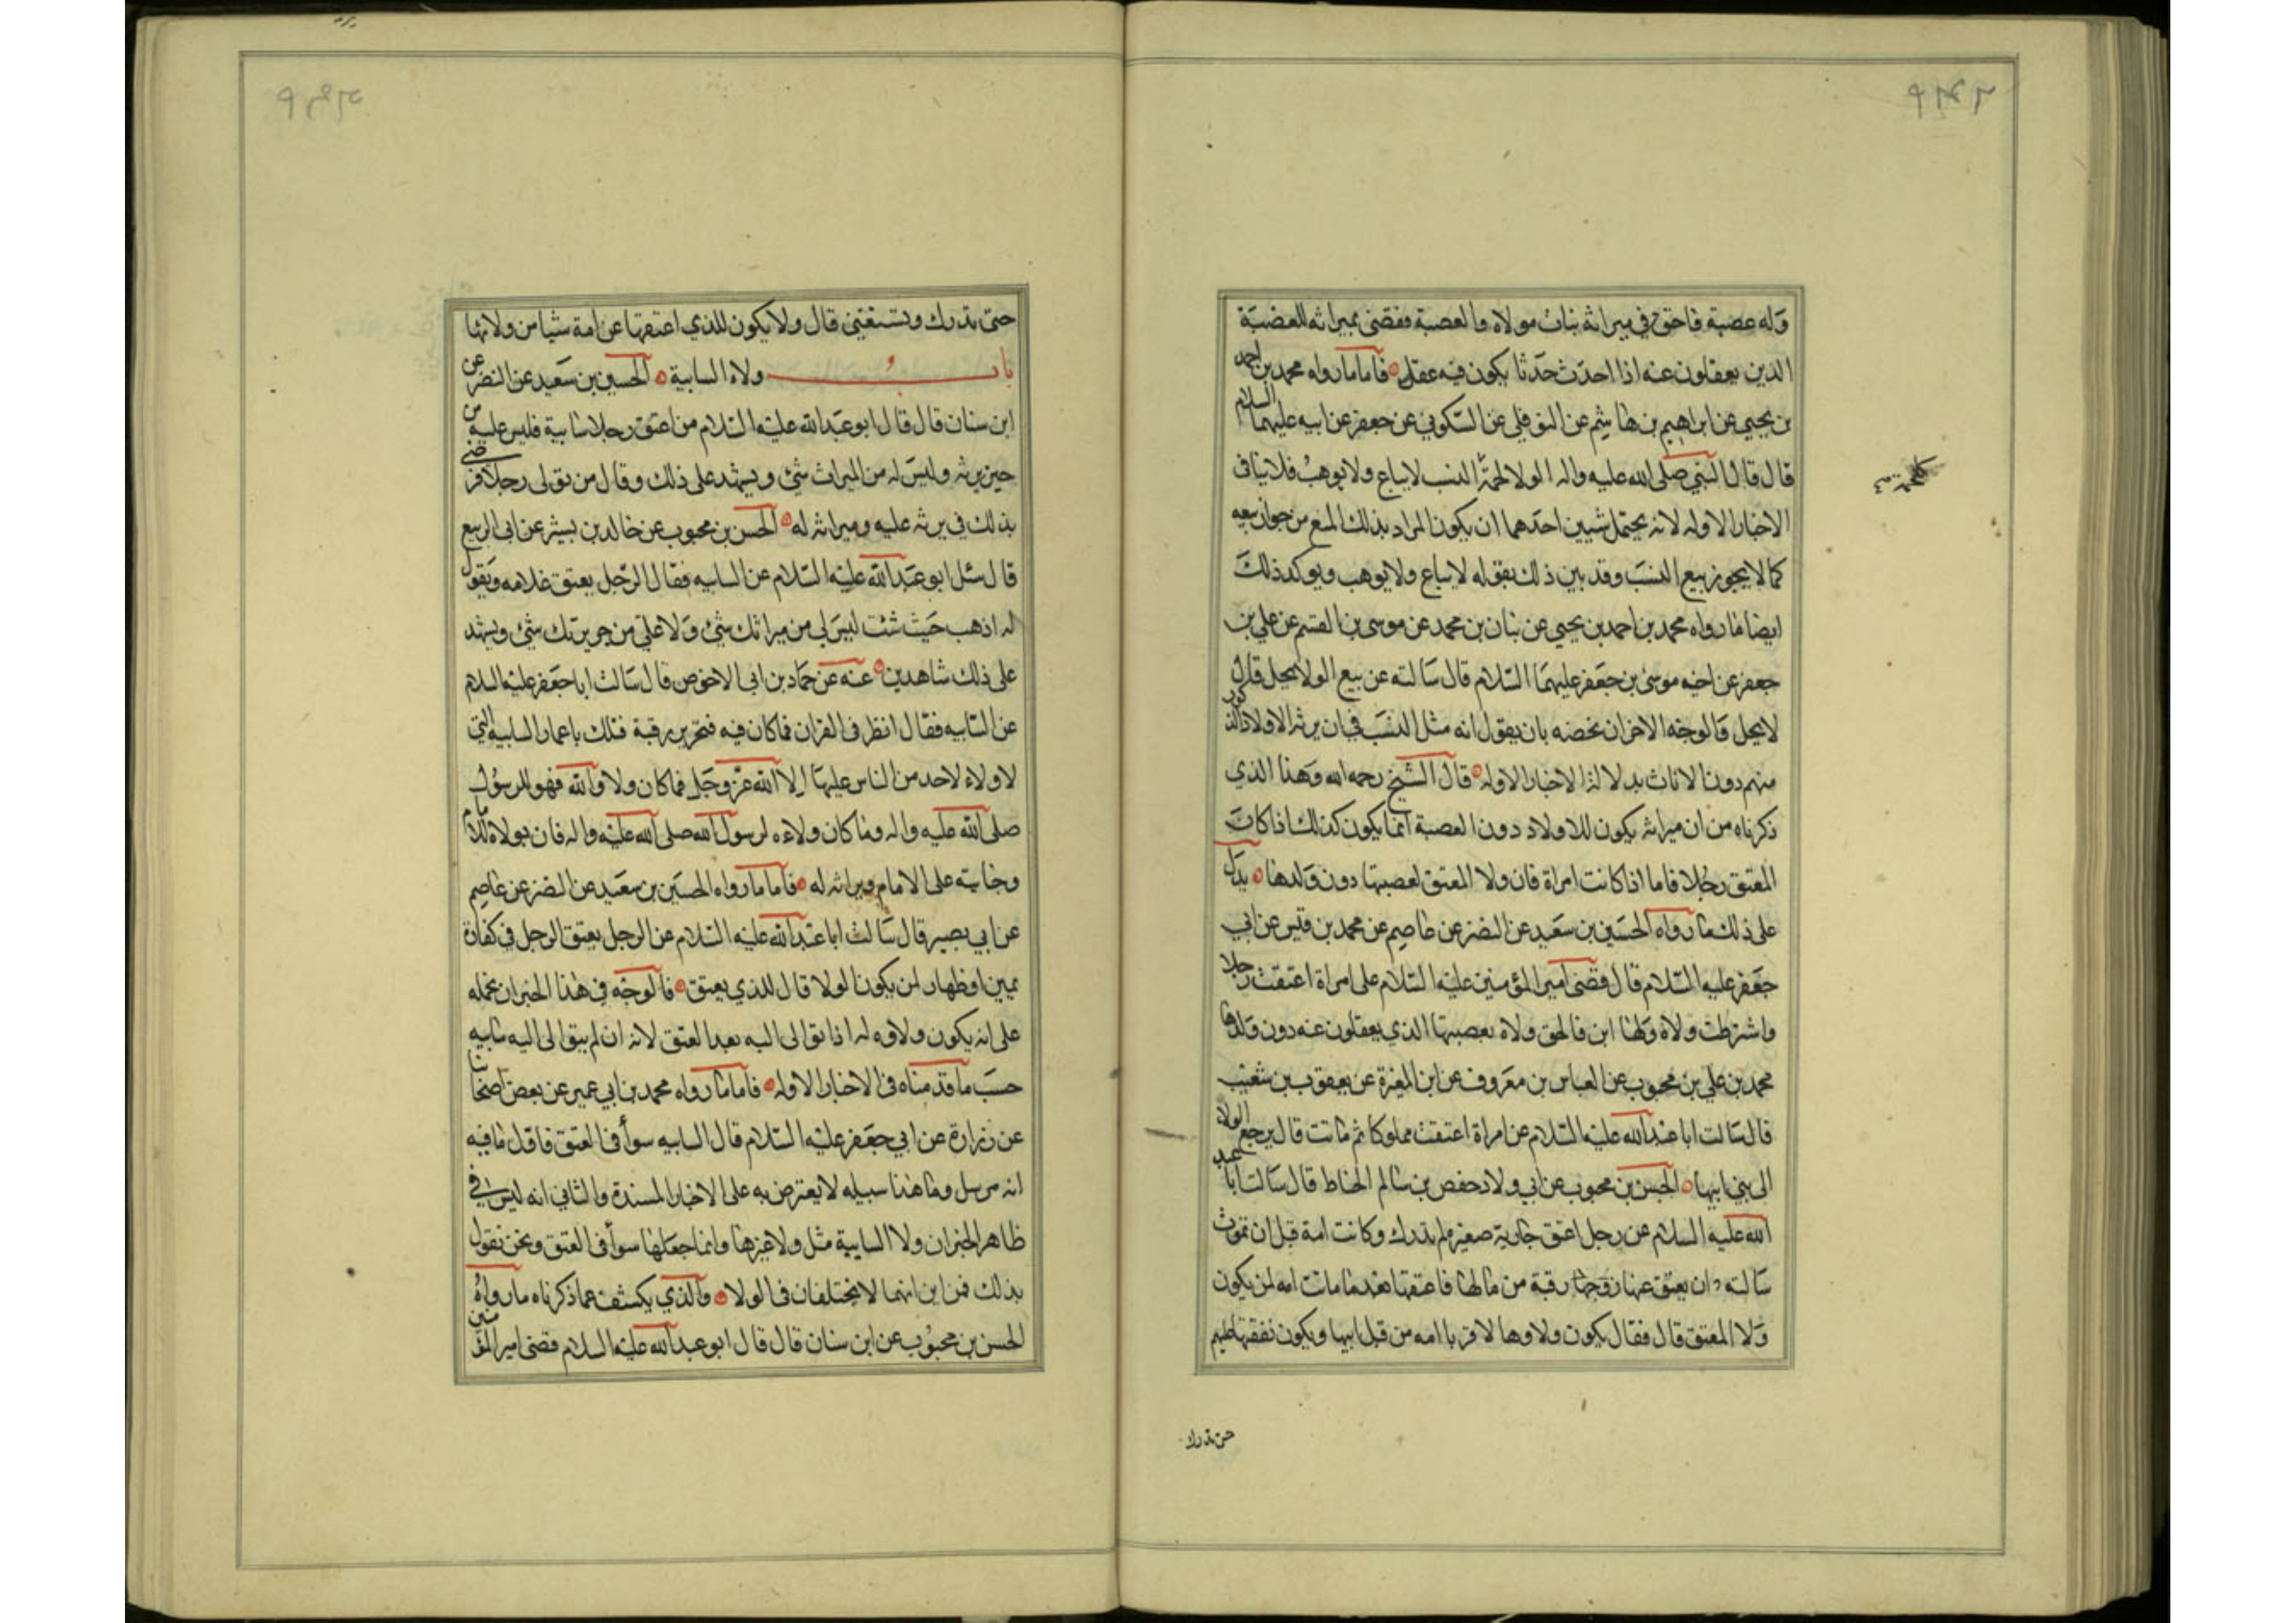 وله عصبة فاحتق في ميراثه بنات مولاه والعصبة فقضى بميراثه للعصبة
الذين يعقلون عنه اذا احدث حدثا يكون فيه عقل فاما ما رواه محمد بن احمد
بن يحيى عن ابراهيم بن هاشم عن النوفلي عن السكوني عن جعفر عن ابيه عليهما السلام
قال قال النبي صلى الله عليه واله الولا لحمة النسب لا يباع ولا يوهب فلا ينافى
الاخبار الاوله لانه يحتمل شيين احدهما ان يكون المراد بذلك المنع من جواز بيعه
كما لا يجوز بيع النسب وقد بين ذلك بقوله لا يباع ولا يوهب ويوكد ذلك
ايضا ما رواه محمد بن احمد بن يحيى عن بنان بن محمد عن موسى بن القسم عن علي بن
جعفر عن اخيه موسى بن جعفر عليهما السلام قال سالته عن بيع الولا يحل قال
لا يحل والوجه الاخر ان نخصه بان يقول انه مثل النسب في ان يرثه الاولاد الذكور
منهم دون الاناث بدلالة الاخبار الاوله قال الشيخ رحمه الله وهذا الذي
ذكرناه من ان ميراثه يكون للاولاد دون العصبة انما يكون كذلك اذا كان
المعتق رجلا فاما اذا كانت امراة فان ولا المعتق لعصبتها دون ولدها يدل
على ذلك ما رواه الحسين بن سعيد عن النضر عن عاصم عن محمد بن قيس عن ابي
جعفر عليه السلام قال قضى امير المؤمنين عليه السلام على امراة اعتقت رجلا
واشترطت ولاه ولها ابن فالحق ولاه بعصبتها الذي يعقلون عنه دون ولدها
محمد بن علي بن محبوب عن العباس بن معروف عن ابن المغيرة عن يعقوب بن شعيب
قال سالت ابا عبد الله عليه السلام عن امراة اعتقت مملوكا ثم ماتت قال يرجع الولاء
الى بني ابيها الحسن بن محبوب عن ابي ولاد حفص بن سالم الحناط قال سالت ابا عبد
الله عليه السلام عن رجل اعتق جارية صغيرة لم تدرك وكانت امة قبل ان تموت
سالته ان يعتق عنها رقبة من مالها فاعتقها بعد ما ماتت امه لمن يكون
ولا المعتق قال فقال يكون ولاوها لاقربا امه من قبل ابيها ويكون نفقتها عليهم
حتى تدرك
حتى تدرك وتستغني قال ولا يكون للذي اعتقها عن امة شيا من ولائها
باب ولاء السايبة الحسين بن سعيد عن النضر عن
ابن سنان قال قال ابو عبد الله عليه السلام من اعتق رجلا سايبة فليس عليه من
جريرته وليس له من الميراث شئ ويشهد على ذلك وقال من تولى رجلا فرضي
بذلك فجريرته عليه وميراثه له الحسن بن محبوب عن خالد بن بسير عن ابي الربيع
قال سئل ابو عبد الله عليه السلام عن السايبه فقال الرجل يعتق غلامه ويقول
له اذهب حيث شئت ليس لي من ميراثك شئ ولا علي من جريرتك شئ ويشهد
على ذلك شاهدين عنه عن حماد بن ابي الاخوص قال سالت ابا جعفر عليه السلام
عن السايبه فقال انظر في القران فما كان فيه فتحرير رقبة فتلك يا عمار السايبه التي
لا ولاء لاحد من الناس عليها الا الله عز وجل فما كان ولاوه لله فهو للرسول
صلى الله عليه واله وما كان ولاءه لرسول الله صلى الله عليه واله فان بولاه للامام
وجنايته على الامام وميراثه له فاما ما رواه الحسين بن سعيد عن النضر عن عاصم
عن ابي بصير قال سالت ابا عبد الله عليه السلام عن الرجل يعتق الرجل في كفارة
يمين او ظهار لمن يكون الولا قال للذي يعتق فالوجه في هذا الخبر ان نحمله
على انه يكون ولاوه له اذا توالى اليه بعد العتق لانه ان لم يتوالى اليه سايبه
حسب ما قدمناه في الاخبار الاوله فاما ما رواه محمد بن ابي عمير عن بعض اصحابنا
عن زرارة عن ابي جعفر عليه السلام قال السايبه سوأ في العتق فاول ما فيه
انه مرسل وما هذا سبيله لا يعترض به على الاخبار المسندة والثاني انه ليس في
ظاهر الخبر ان ولا السايبة مثل ولا غيرها وانما جعلها سوأ في العتق ونحن نقول
بذلك فمن اين انهما لا يختلفان في الولا والذي يكشف عما ذكرناه ما رواه
الحسن بن محبوب عن ابن سنان قال قال ابو عبد الله عليه السلام قضى امير المؤمنين